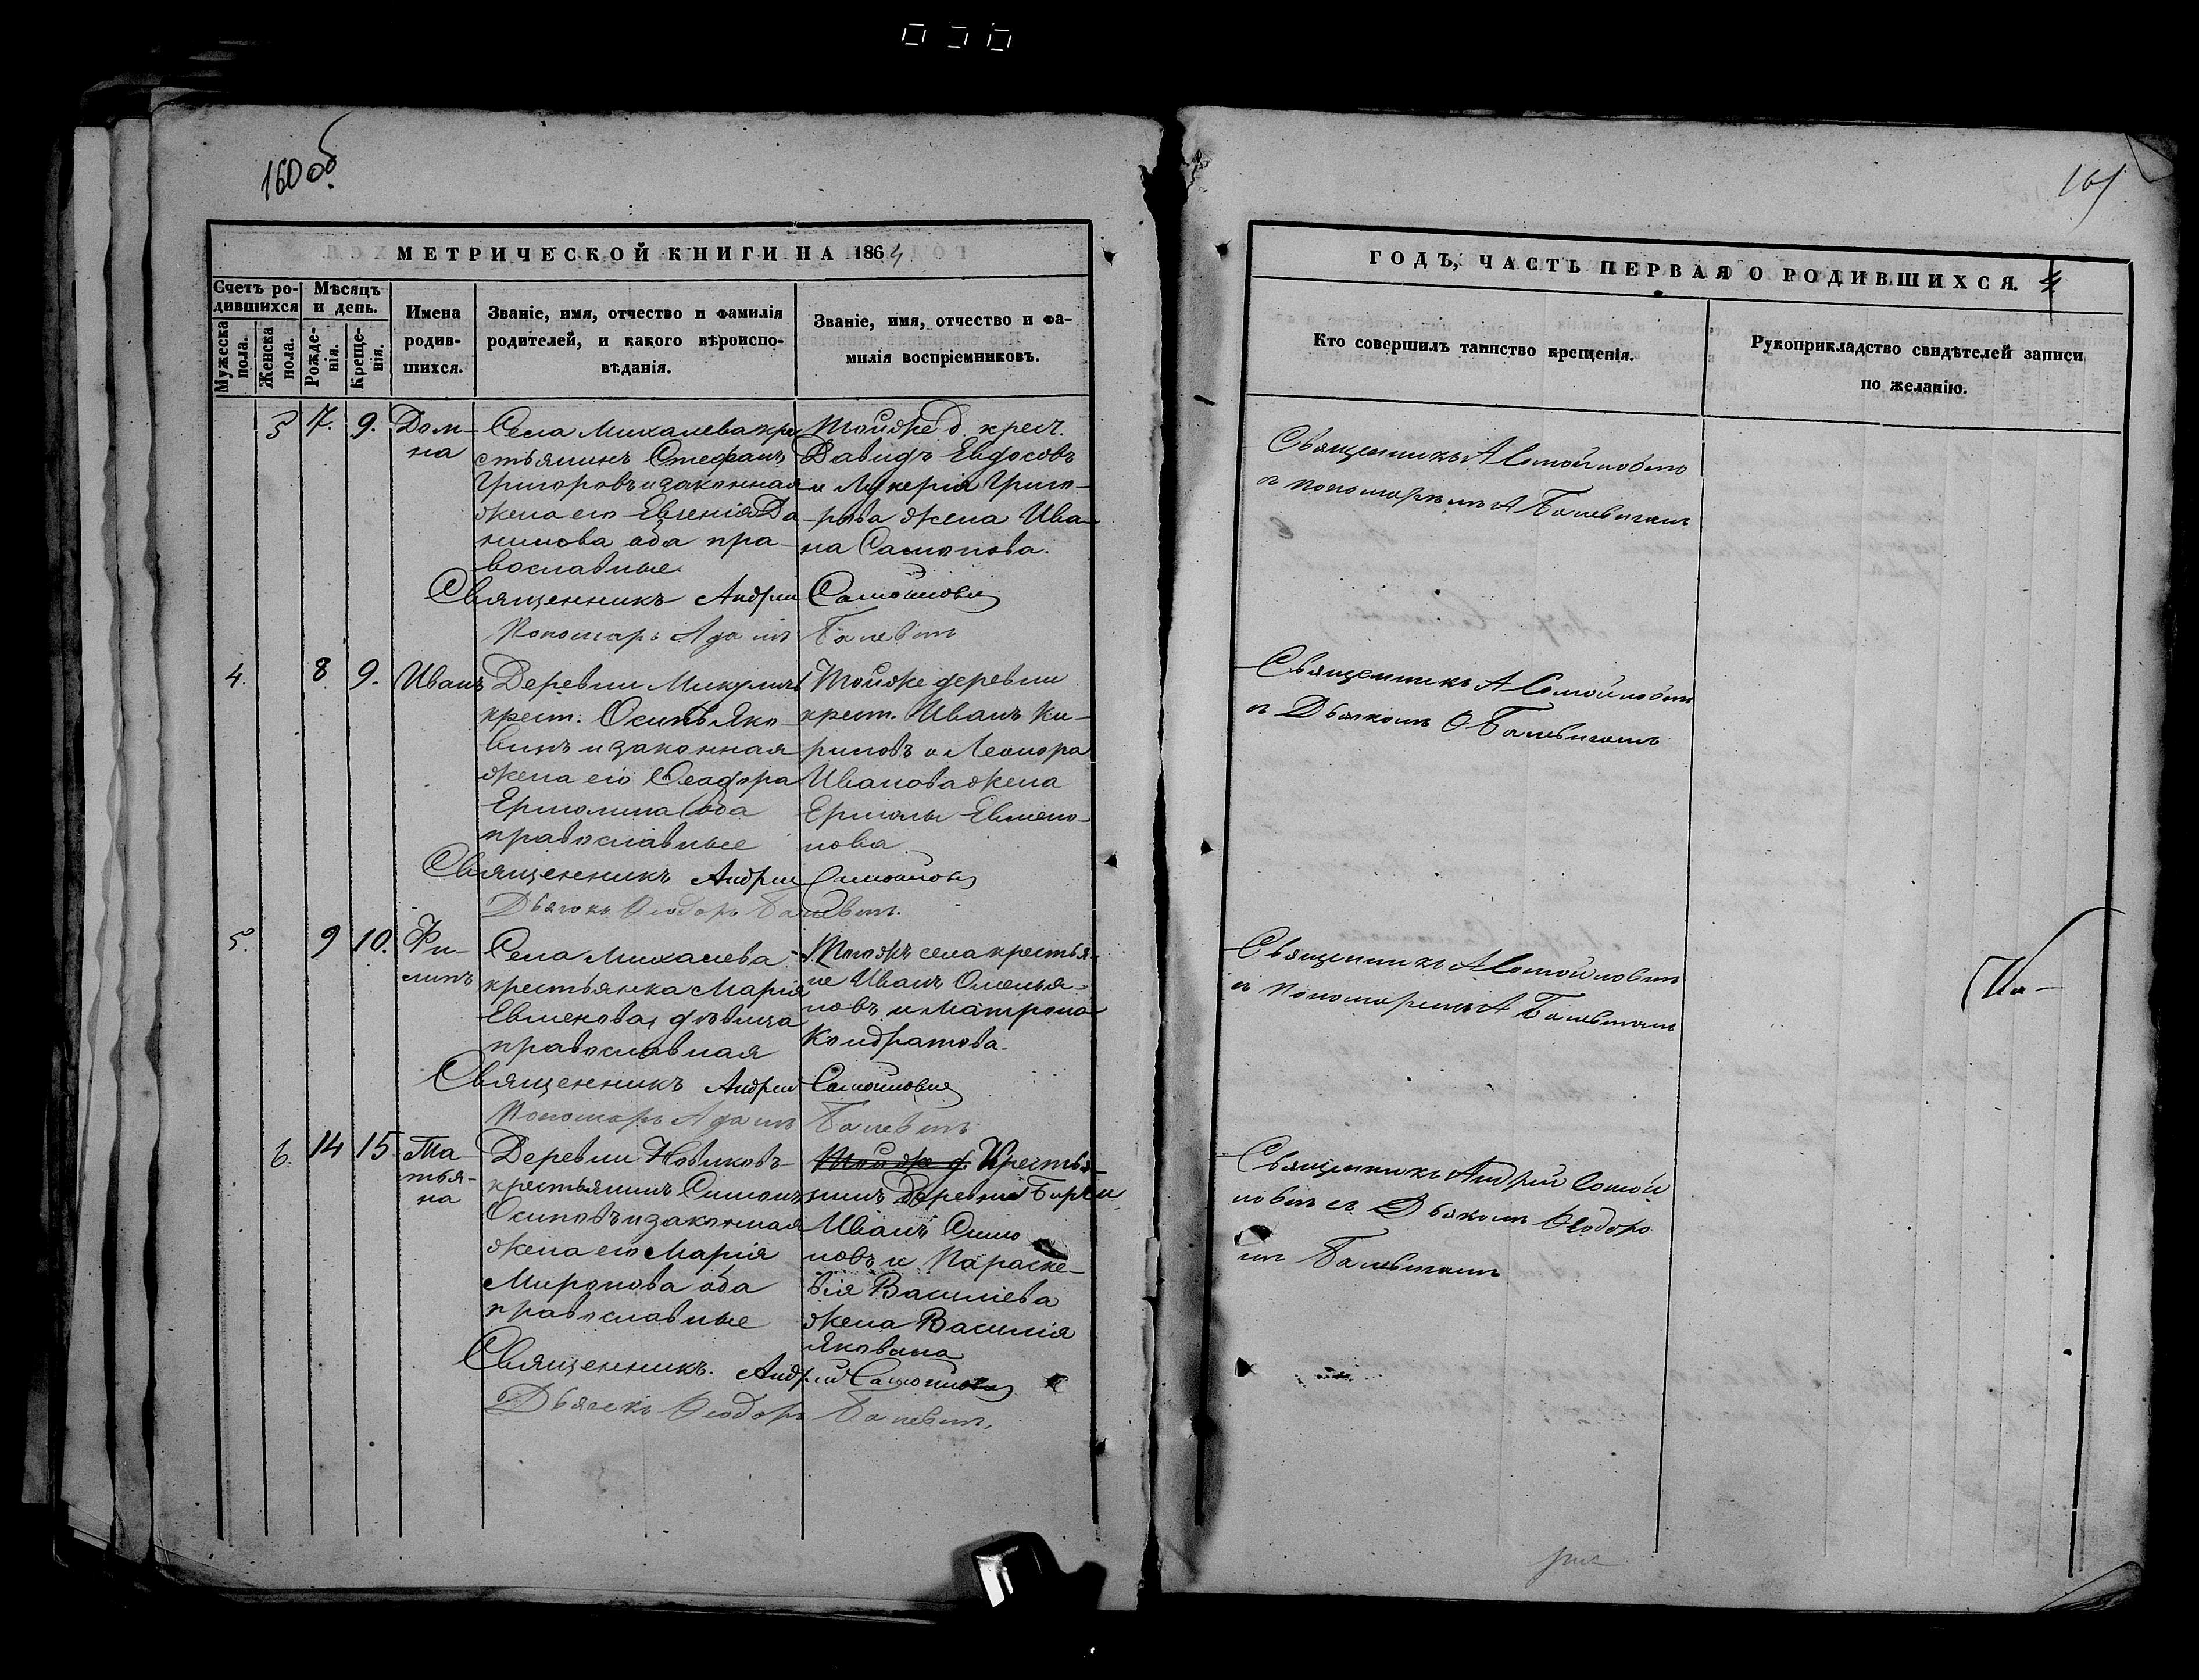 160 об.
161
МЕТРИЧЕСКОЙ КНИГИ НА 1864
Счетъ родившихся
Мѣсяцъ и день.
Мужеска пола.
Женска пола.
Рожденія.
Крещенія.
Имена родившихся.
Званіе, имя, отчество и фамилія
родителей, и какого вѣроиспо-
вѣданія.
Званіе, имя, отчество и фа-
милія воспріемниковъ.
5 7. 9. Дом-
на
Села Михалева кре
стьянинъ Стефанъ
Григоровъ и законная
жена его Евгенія Да
нилова оба пра-
вославные.
Тойже д. крест.
Давидъ Евдосовъ
и Лукерія Григо-
рова жена Ива-
на Самонова.
Священникъ Андрей Самойловичъ
Пономарь Адамъ Балевичъ
4. 8 9. Иванъ
Деревни Микуличъ
крест. Осипъ Яко-
винъ и законная
жена его Феодора
Ермолина оба
православные
Тойже деревни
крест. Иванъ Ки-
риловъ и Леонора
Иванова жена
Ермолы Евмено-
нова
Священникъ Андрей Самойловичъ
Дьячокъ Ѳеодоръ Балевичъ.
5. 9 10. Фи-
липъ
Села Михалева
крестьянка Марія
Евменова, дѣвица
православная
Тогожъ села крестья-
не Иванъ Омелья-
новъ и Матрона
Кондратова.
Священникъ Андрей Самойловичъ
Пономарь Адамъ Балевичъ
6. 14 15. Та-
тья-
на
Деревни Новиковъ
крестьянинъ Симонъ
Осиповъ и законная
жена его Марія
Миронова оба
православные
Тойже д. Крестья-
нинъ деревни Борки
Иванъ Симо
новъ и Параске-
вія Василіева
жена Василія
Яковина
Священникъ. Андрей Самойловичъ
Дьячекъ Ѳеодоръ Балевичъ.
ГОДЪ, ЧАСТЬ ПЕРВАЯ О РОДИВШИХСЯ. 4.
Кто совершилъ таинство крещенія.
Рукоприкладство свидѣтелей записи
по желанію.
Священникъ А Самойловичъ
съ пономаремъ А Балевичемъ
Священникъ А Самойловичъ
съ Дьячкомъ Ѳ Балевичемъ
Священникъ А Самойловичъ
съ пономаремъ А Балевичемъ
Священникъ Андрей Самой
ловичъ съ Дьячкомъ Ѳеодоро
мъ Балевичемъ